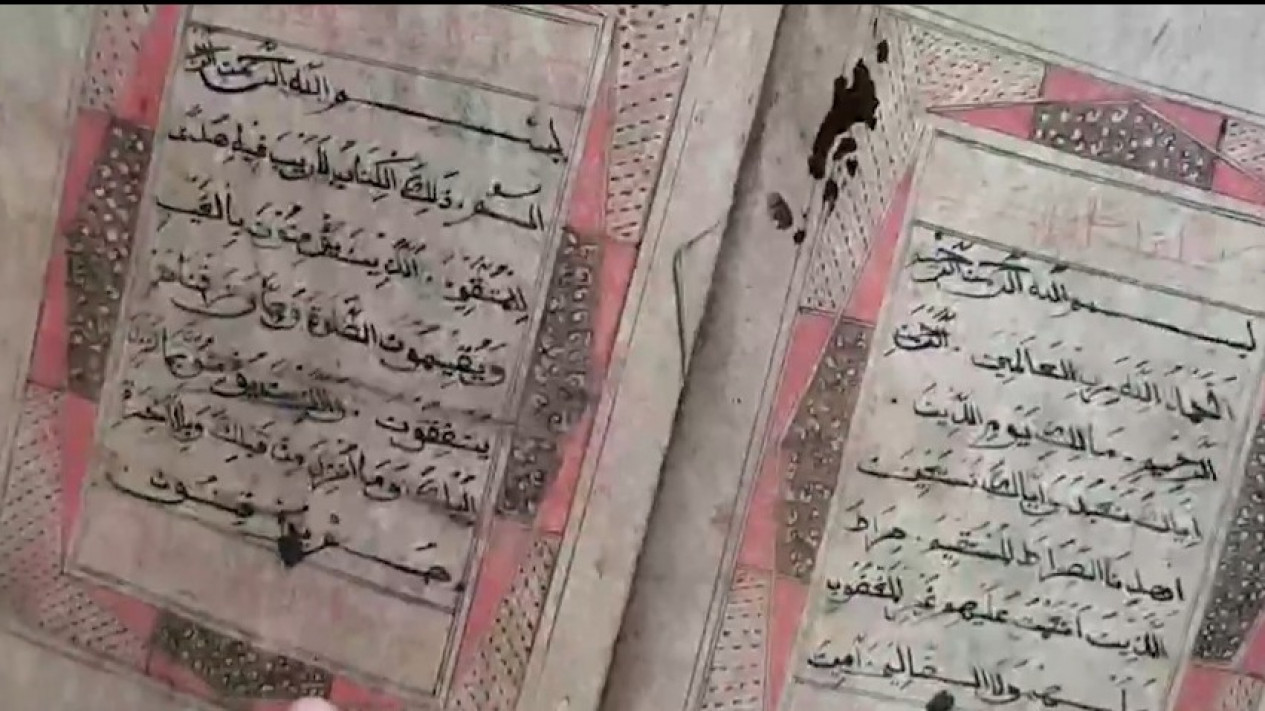 بسم الله الرحمن الرحيم
الحمد لله رب العالمين الرحمن
الرحيم مالك يوم الدين
اياك نعبد و اياك نستعين
اهدنا الصراط المستقيم صراط
الذين انعمت عليهم غير المغضوب
عليهم ولا الضالين امين
بسم الله الرحمن الرحيم
الم ذلك الكتاب لا ريب فيه هدى
للمتقين الذين يؤمنون بالغيب
ويقيمون الصلوة ومما رزقناهم
ينفقون والذين يؤمنون بما انزل
اليك وما انزل من قبلك وبالاخرة
هم يوقنون